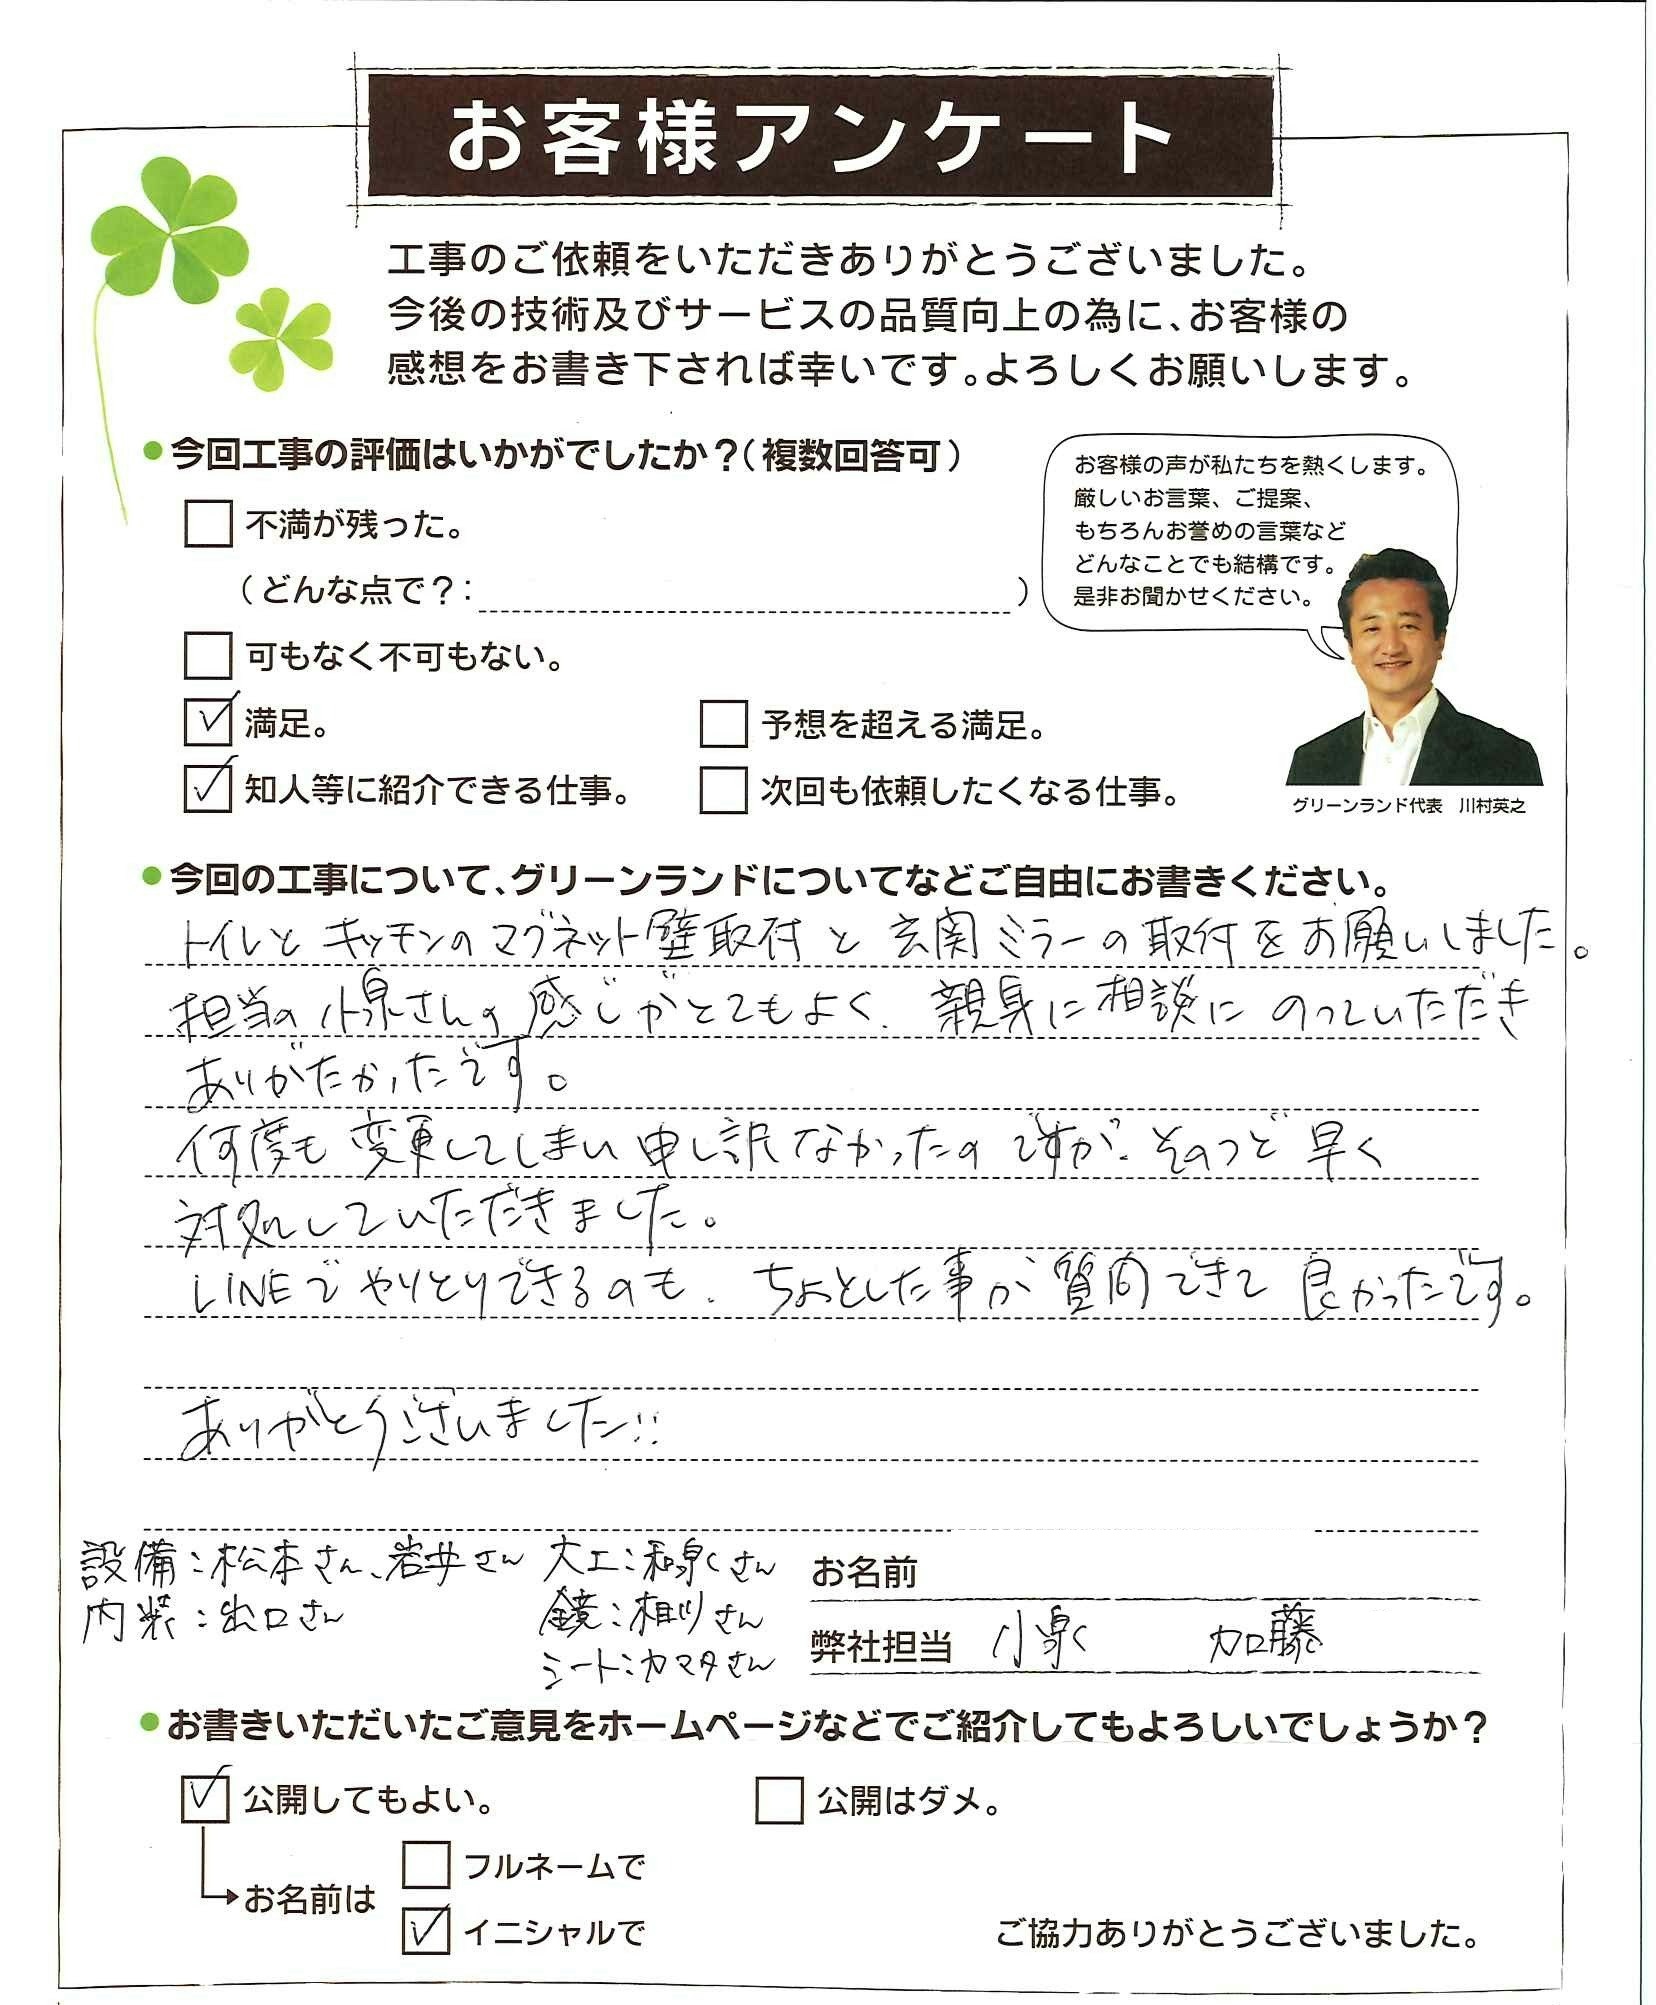 お客様アンケート
工事のご依頼をいただきありがとうございました。
今後の技術及びサービスの品質向上の為に、お客様の
感想をお書き下されば幸いです。よろしくお願いします。
●今回工事の評価はいかがでしたか？(複数回答可)
不満が残った。
(どんな点で？: )
可もなく不可もない。
満足。
予想を超える満足。
知人等に紹介できる仕事。
次回も依頼したくなる仕事。
お客様の声が私たちを熱くします。
厳しいお言葉、ご提案、
もちろんお誉めの言葉など
どんなことでも結構です。
是非お聞かせください。
グリーンランド代表 川村英之
●今回の工事について、グリーンランドについてなどご自由にお書きください。
トイレと キッチンのマグネット壁取付と 玄関ミラーの取付をお願いしました。
担当の小泉さんの感じがとてもよく、親身に相談にのっていただき
ありがたかったです。
何度も変更してしまい申し訳なかったのですが、そのつど早く
対処していただきました。
LINEでやりとりできるのも、ちょっとした事が質問できて良かったです。
ありがとうございました!!
設備:松本さん、岩井さん 大工:和泉さん
内装:出口さん 鏡:相川さん
シート:カマタさん
お名前
弊社担当 小泉 加藤
●お書きいただいたご意見をホームページなどでご紹介してもよろしいでしょうか？
公開してもよい。
公開はダメ。
お名前は
フルネームで
イニシャルで
ご協力ありがとうございました。